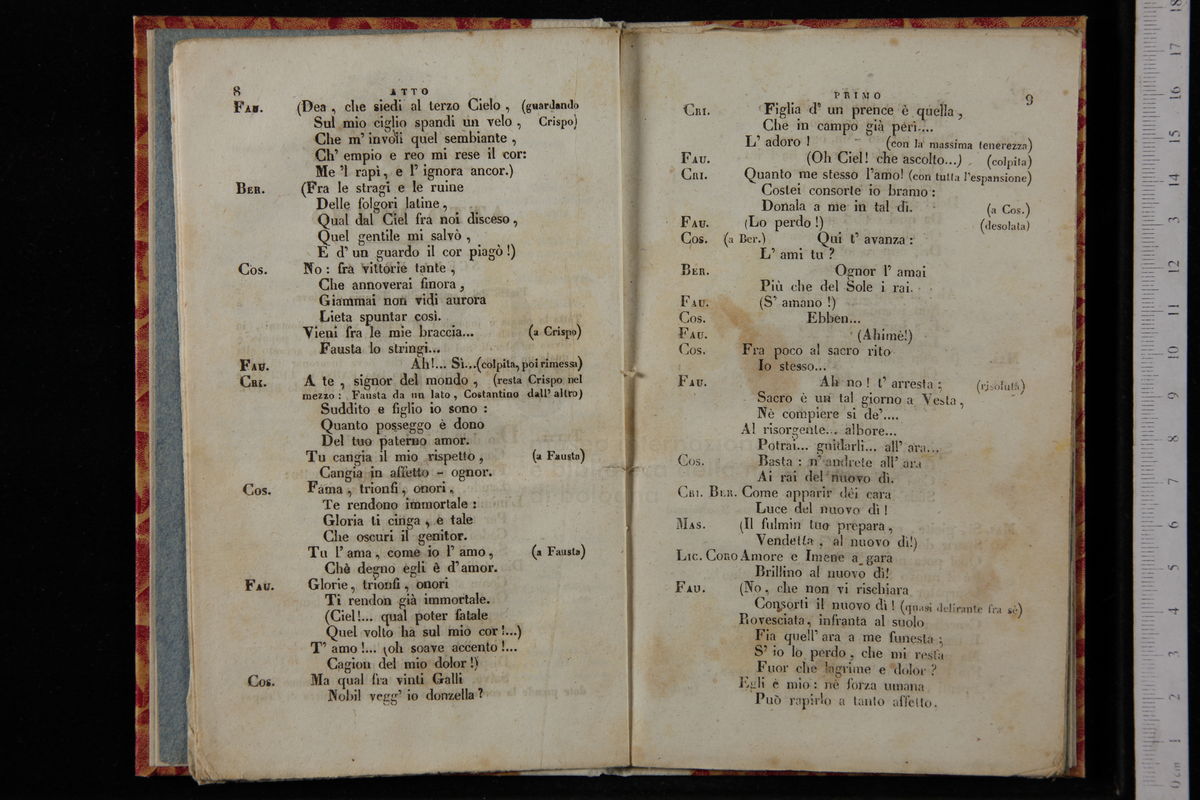 8 ATTO
FAU. (Dea , che siedi al terzo Cielo , (guardando
Sul mio ciglio spandi un velo , Crispo)
Che m' involi quel sembiante ,
Ch' empio e reo mi rese il cor:
Me 'l rapì, e l' ignora ancor.)
BER. (Fra le stragi e le ruine
Delle folgori latine,
Qual dal Ciel fra noi disceso ,
Quel gentile mi salvò ,
E d' un guardo il cor piagò !)
Cos. No : fra vittorie tante ,
Che annoverai finora ,
Giammai non vidi aurora
Lieta spuntar così.
Vieni fra le mie braccia... (a Crispo)
Fausta lo stringi...
FAU. Ah!... Sì...(colpita, poi rimessa)
CRI. A te , signor del mondo , (resta Crispo nel
mezzo : Fausta da un lato , Costantino dall' altro)
Suddito e figlio io sono :
Quanto posseggo è dono
Del tuo paterno amor.
Tu cangia il mio rispetto , (a Fausta)
Cangia in affetto - ognor.
Cos. Fama , trionfi , onori ,
Te rendono immortale :
Gloria ti cinga , e tale
Che oscuri il genitor.
Tu l' ama , come io l' amo , (a Fausta)
Chè degno egli è d' amor.
FAU. Glorie , trionfi , onori
Ti rendon già immortale.
(Ciel!... qual poter fatale
Quel volto ha sul mio cor !...)
T' amo !... (oh soave accento !...
Cagion del mio dolor !)
Cos. Ma qual fra vinti Galli
Nobil vegg' io donzella ?
PRIMO 9
CRI. Figlia d' un prence è quella ,
Che in campo già perì....
L' adoro ! (con la massima tenerezza)
FAU. (Oh Ciel! che ascolto...) (colpita)
CRI. Quanto me stesso l'amo! (con tutta l'espansione)
Costei consorte io bramo :
Donala a me in tal dì. (a Cos.)
FAU. (Lo perdo !) (desolata)
Cos. (a Ber.) Qui t' avanza :
L' ami tu ?
BER. Ognor l' amai
Più che del Sole i rai.
FAU. (S' amano !)
Cos. Ebben...
FAU. (Ahimè!)
Cos. Fra poco al sacro rito
Io stesso...
FAU. Ah no ! t' arresta ; (risoluta)
Sacro è un tal giorno a Vesta ,
Nè compiere si de'....
Al risorgente... albore...
Potrai... guidarli... all' ara...
Cos. Basta : n' andrete all' ara
Ai rai del nuovo dì.
CRI. BER. Come apparir dèi cara
Luce del nuovo dì !
MAS. (Il fulmin tuo prepara ,
Vendetta , al nuovo dì!)
LIC. CORO Amore e Imene a gara
Brillino al nuovo dì!
FAU. (No , che non vi rischiara
Consorti il nuovo dì ! (quasi delirante fra sè)
Rovesciata, infranta al suolo
Fia quell' ara a me funesta ;
S' io lo perdo , che mi resta
Fuor che lagrime e dolor ?
Egli è mio : nè forza umana
Può rapirlo a tanto affetto.